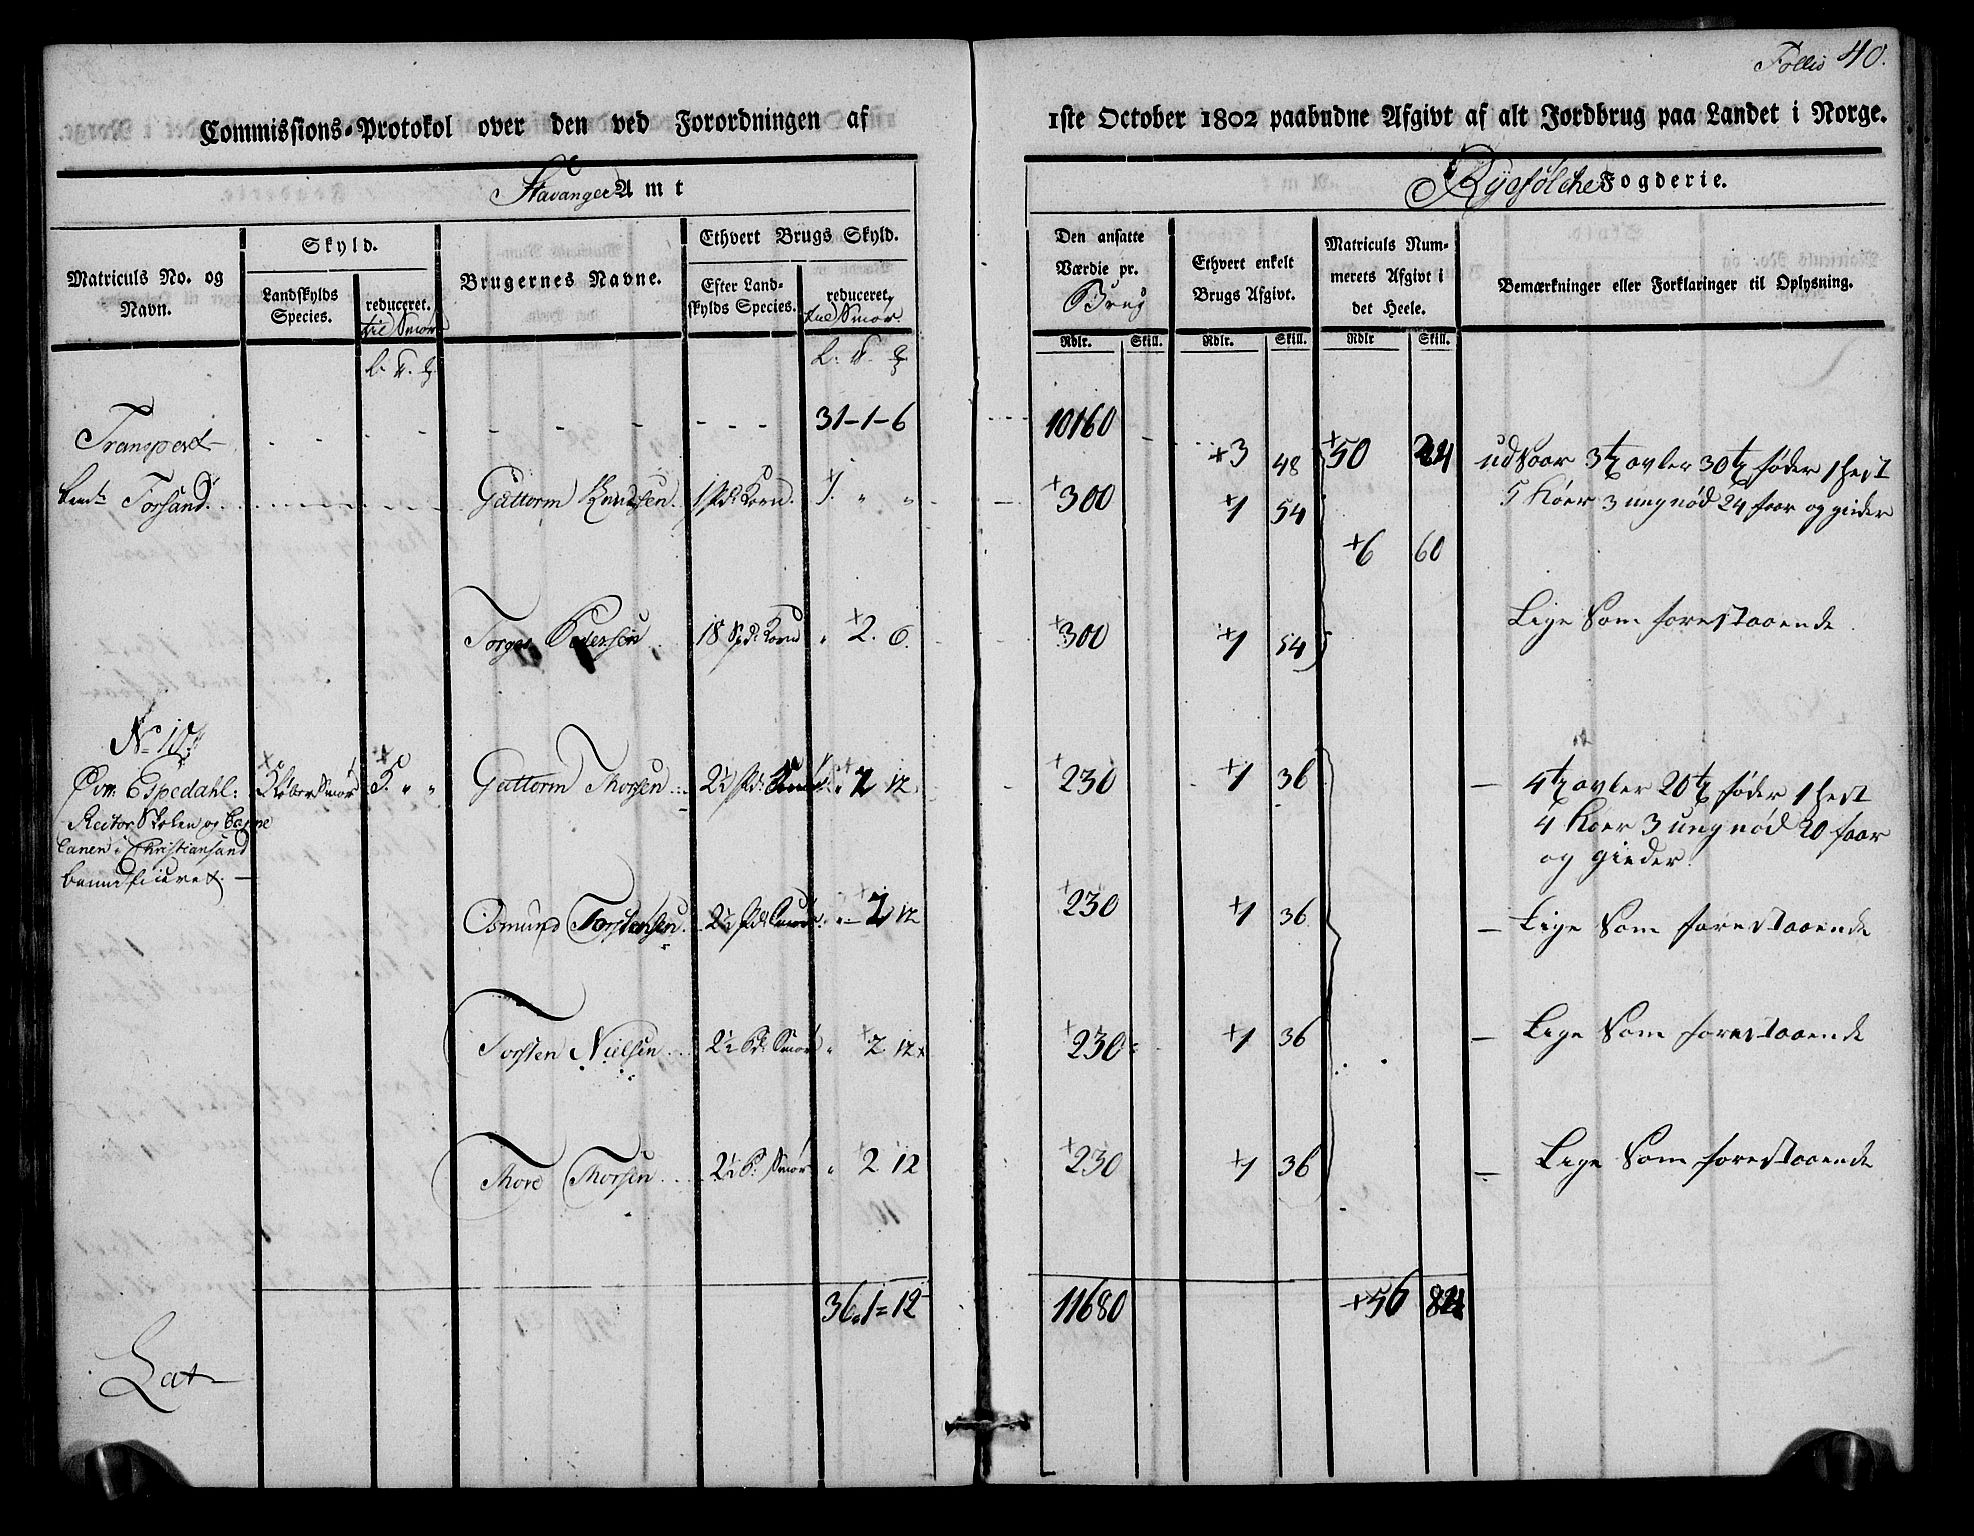 Follio 40.
Commissions-Protokol over den ved Forordningen af 1ste October 1802 paabudne Afgivt af alt Jordbrug paa Landet i Norge.
Stavanger Amt
Ryefølche Fogderie.
Matriculs No. og Navn.
Skyld.
Landskylds Species.
reduceret. til Smør
Brugernes Navne.
Ethvert Brugs Skyld.
Efter Landskylds Species.
reduceret. til Smør.
Den ansatte Værdie pr. Brug
Ethvert enkelt Brugs Afgivt.
Matriculs Nummerets Afgivt i det Heele.
Bemærkninger eller Forklaringer til Oplysning.
Rdlr. Skill. Rdlr. Skill. Rdlr Skill.
Transport 31-1-6 10160 50 24
Forsand Guttorm Knudsen 1 Pd Korn 1 " " 3 48 300 1 54 udsaar 3 tr avler 30 tr føder 1 hest
5 Køer 3 ungnød 24 faar og gieder
6 60
Pedersen 18 Spd Korn " 2. 6. 300 1 54 Lige som forestaaende
No 10
Espedahl: 3 Løber Smør 3. " " Guttorm Thorsen 2½ Pd Smør " 2 12 230 1 36 4 tr avler 20 tr føder 1 hest
Rector Skolen og Cappe
lanen i Christiansand
beneficieret
4 Køer 3 ungnød 20 faar
og gieder.
Osmund Torstensen 2½ Pd Smør " 2 12 230 1 36 Lige som forestaaende
Torsten Nielsen 2½ Pd Smør " 2 12 230 1 36 Lige som forestaaende
Thore Thorsen 2½ P: Smør " 2 12 230 1 36 Lige som forestaaende
36.1=12 11680 56 84
Lat